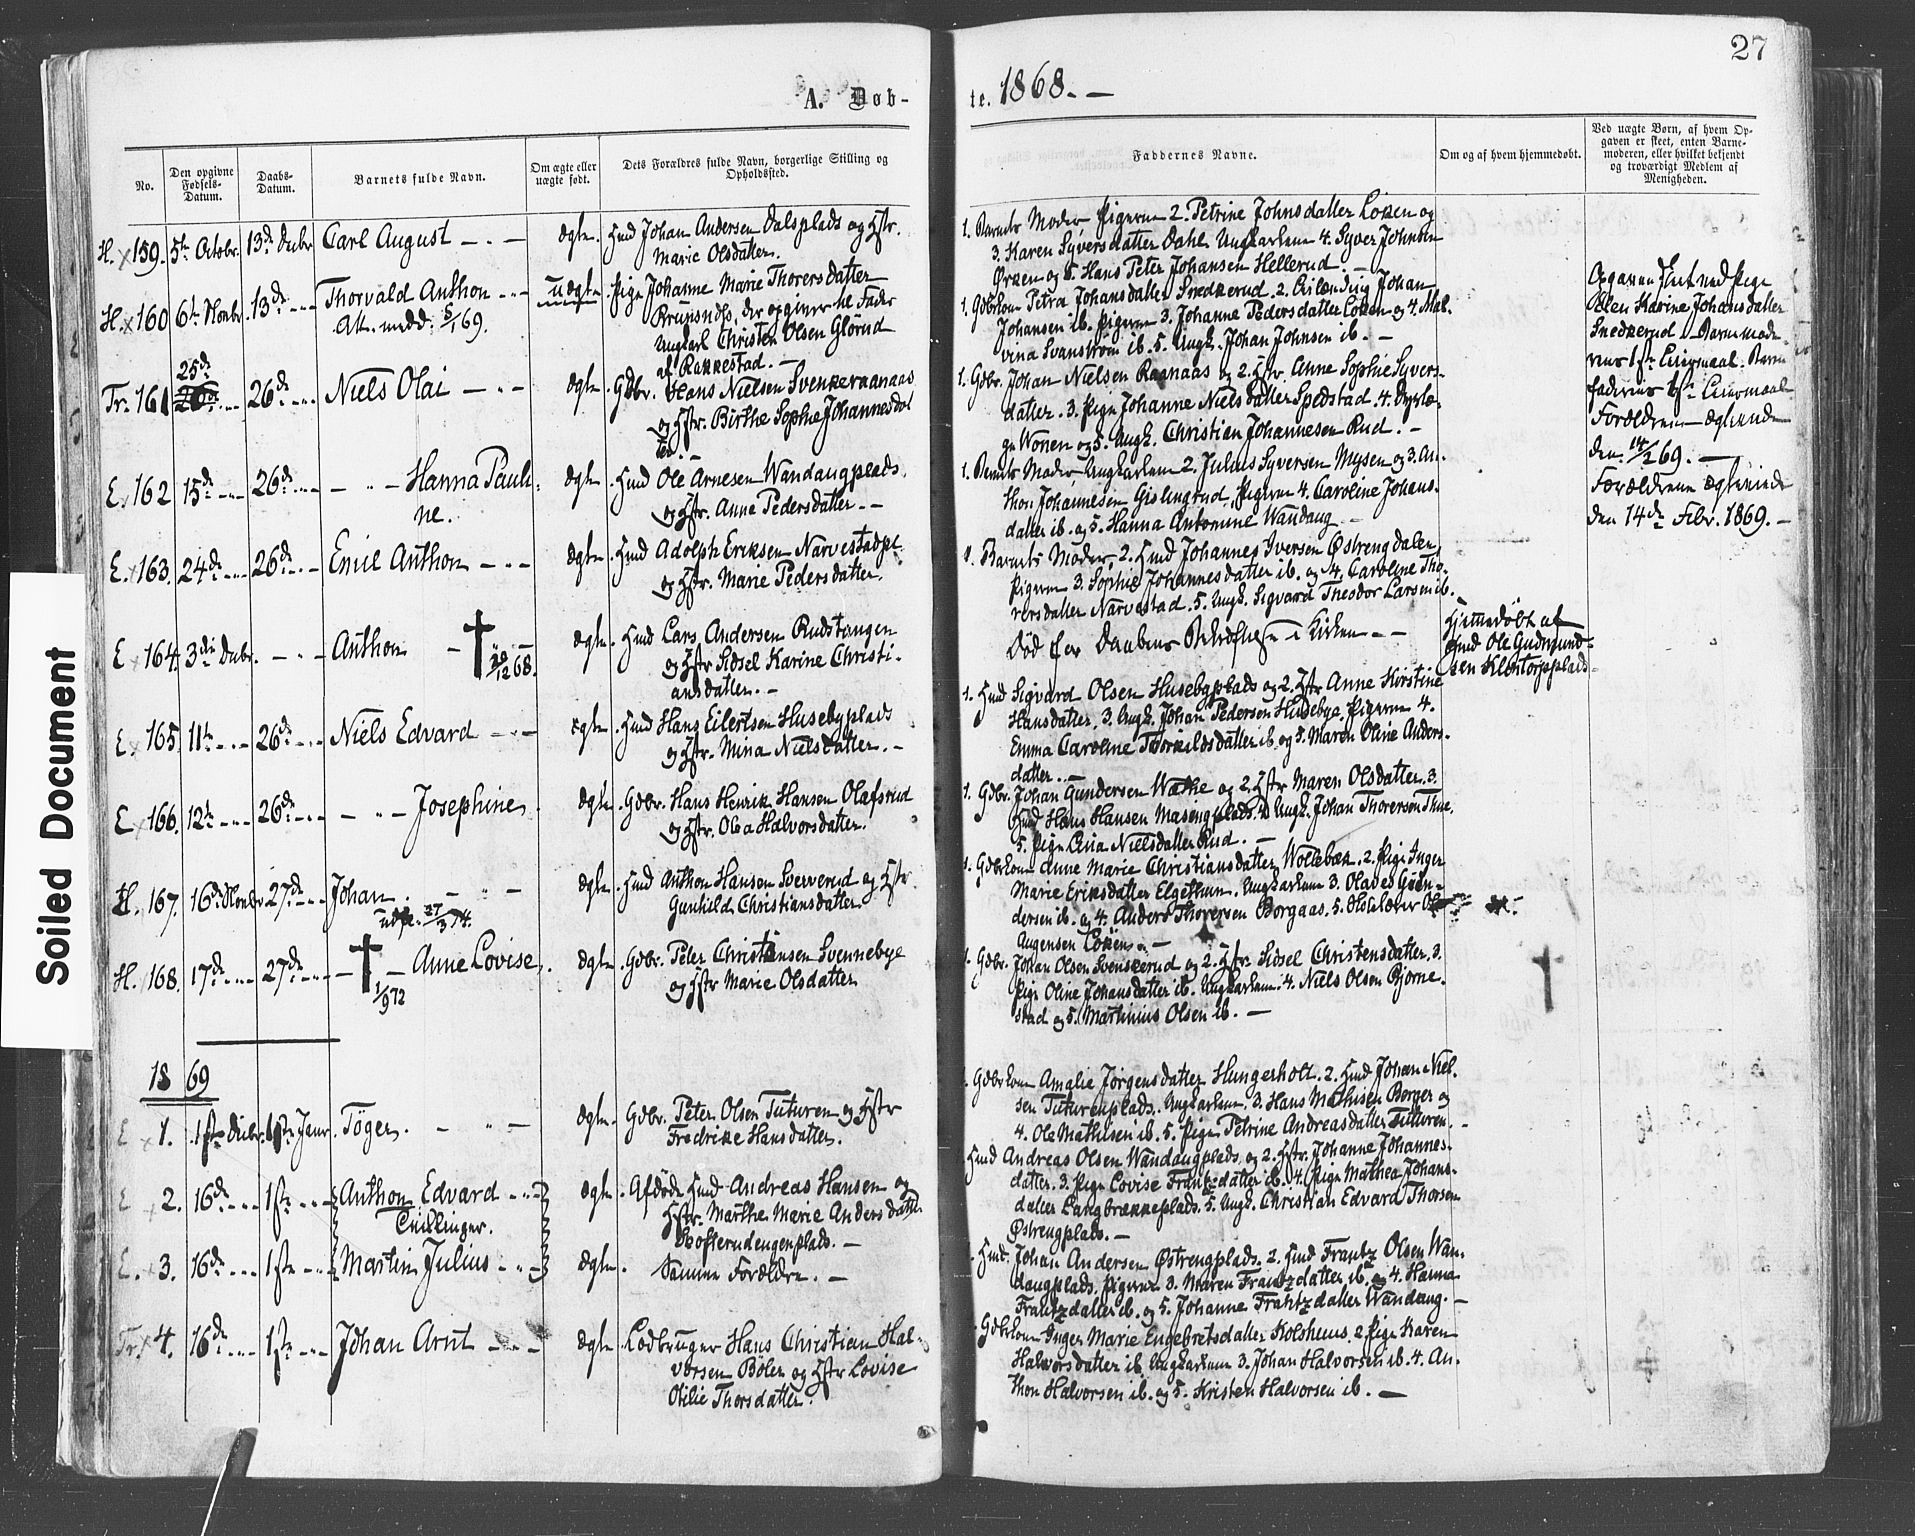 27
A. Døb-
te. 1868. —
No.
Den opgivne Fødsels-Datum.
Daabs-Datum.
Barnets fulde Navn.
Om ægte eller uægte født.
Dets Forældres fulde Navn, borgerlige Stilling og Opholdssted.
Faddernes Navne.
Om og af hvem hjemmedøbt.
Ved uægte Børn, af hvem Opgaven er skeet, enten Barnemoderen, eller hvilket bekjendt og troværdigt Medlem af Menigheden.
H. x 159. 5te Octobr. 13de Decbr. Carl August — ægte. Hmd Johan Andersen Dalsplads og Hstr.
Marie Olsdatter.
1. Barnets Moder, Pigerne 2. Petrine Johnsdatter Løken og
3. Karen Syversdatter Dahl. Ungkarlene 4. Syver Johnsen
Ørken og 5. Hans Peter Johansen Hellerud. —
H. x 160 6te Novbr. 13de Thorvald Anthon uægte. Pige Johanne Marie Thorersdatter
Att. medd. 5/1 69.
Brunsnds. der opgiver til Fader
Ungkarl Christen Olsen Glørud
af Rakkestad. —
1. Gdbrkone Petra Johansdatter Snedkerud. 2. Johan
Johansen ib. Pigerne 3. Johanne Pedersdatter Løken og 4. Mal-
vina Svanstrøm ib. 5. Ungk. Johan Johnsen ib. —
Opgaven skeet ved Pige
Ellen Karine Johansdatter
Snedkerud. Barnemode-
rens 1ste Leiermaal. Barne-
faderens 1ste Leiermaal
Forældrene ægteviede
den 14/2 69. —
Forældrene ægteviede
den 14de Febr. 1869. —
Tr. 161 25de 26de Niels Olai — ægte Gdbr. Hans Nielsen Svenkeraanaas
og Hstr. Birthe Sophie Johannesdat
ter. —
1. Gdbr. Johan Nielsen Raanaas og 2. Hstr. Anne Sophie Syvers-
datter. 3. Pige Johanne Nielsdatter Spedstad. 4. Dyrlæ-
ge Wonen og 5. Ungk. Christian Johannesen Rud. —
E x 162 15de 26de — Hanna Pauli-
ne.
ægte. Hmd Ole Arnesen Wandaugplads.
og Hstr. Anne Pedersdatter. —
1. Barnets Moder, Ungkarlene 2. Julius Syversen Mysen og 3. An-
thon Johannesen Gislingrud, Pigerne 4. Caroline Johans-
datter ib. og 5. Hanna Antonine Wandaug —
E. x 163. 24de 26de Emil Anthon — ægte Hmd Adolph Eriksen Narvestadpl.
og Hstr. Marie Pedersdatter.
1. Barnets Moder, 2. Hmd Johannes Iversen Østrengdalen,
Pigerne 3. Sophie Johannesdatter ib. og 4. Caroline Tho-
rersdatter Narvestad. 5. Ungk. Sigvard Theodor Larsen ib.
E x 164. 3die Decbr. — Anthon — 20/12 68. ægte. Hmd Lars Andersen Rudstangen
og Hstr Sidsel Karine Christi-
ansdatter. —
Død før Daabens Bekræftelse i Kirken —
Hjemmedøbt af
Hmd Ole Gudmund-
sen Klontorpplads
E x 165. 11te 26de Niels Edvard — ægte Hmd Hans Eilertsen Husebyplads
og Hstr. Mina Nielsdatter. —
1. Hmd Sigvard Olsen Husebyplads og 2. Hstr Anne Kirstine
Hansdatter, 3. Ungk. Johan Pedersen Husebye, Pigerne 4.
Emma Caroline Thorkildsdatter ib og 5. Maren Oline Anders-
datter. —
E x 166. 12te 26de — Josephine. ægte Gdbr. Hans Henrik Hansen Olafsrud
og Hstr. Olea Halvorsdatter.
1. Gdbr. Johan Gundersen Wathe og 2. Hstr Maren Olsdatter. 3.
Hmd Hans Hansen Masengplads. 4. Ungk. Johan Thorersen Thue.
5. Pige Lina Nielsdatter Rud. —
H. 167. 16de Novbr 27de Johan. —
udfl. 27/3 74.
ægte. Hmd Anthon Hansen Sververud og Hstr.
Gunhild Christiansdatter
1. Gdbrkone Anne Marie Christiansdatter Wollebæk. 2. Pige Inger
Marie Eriksdatter Elgethun. Ungkarlene 3. Olaves Gun-
dersen ib. og 4. Anders Thorersen Borgaas. 5.
Augensen Løken. —
H. 168. 17de 27de — Anne Lovise.
1/9 72
ægte. Gdbr. Peter Christensen Svennebye
og Hstr Marie Olsdatter
1. Gdbr. Johan Olsen Svenskerud og 2. Hstr Sidsel Christensdatter. 3.
Pige Oline Johansdatter ib. Ungkarlene 4. Niels Olsen Bjørne-
stad og 5. Martinius Olsen ib. —
1869
E x 1. 1ste Decbr. 1ste Janr. Tøger. — ægte. Gdbr. Peter Olsen Tuturen og Hstr
Fredrikke Hansdatter.
Gdbrkone Amalie Jørgensdatter Hungerholt. 2. Hmd Johan Niel-
sen Tuturenplads. Ungkarlene 3. Hans Mathisen Berger og
4. Ole Mathisen ib. 5. Pige Petrine Andreasdatter Tutturen.
E x 2. 16de 1ste Anthon Edvard
Tvillinger.
ægte. Afdøde Hmd Andreas Hansen og
Hstr. Marthe Marie Andersdatter
Hofterudengenplads. —
Hmd Andreas Olsen Wandaugplads og 2. Hstr. Johanne Johannes-
datter. 3. Pige Lovise Frantzdatter ib. 4. Pige Mathea Johans-
datter Langbrækkeplads. 5. Ungk. Christian Edvard Thorsen
Østrengplads. —
E. x 3. 16de 1ste Martin Julius ægte. Samme Forældre. —
Hmd. Johan Andersen Østrengplads. 2. Hmd Frantz Olsen Wan-
daugplads. Pigerne 3. Maren Frantzdatter ib. og 4. Hanna
Frantzdatter ib. og 5. Johanne Frantzdatter Wandaug. —
Tr. x 4. 16de 1ste Johan Arnt ægte Lodbruger Hans Christian Hal-
vorsen Bølen og Hstr Lovise
Otilie Thorsdatter.
Gdbrkone Inger Marie Engebretsdatter Kolshuus. 2. Pige Karen
Halvorsdatter ib. Ungkarlene 3. Johan Halvorsen ib. 4. An-
thon Halvorsen ib. og 5. Kristen Halvorsen ib. —
Soiled Document